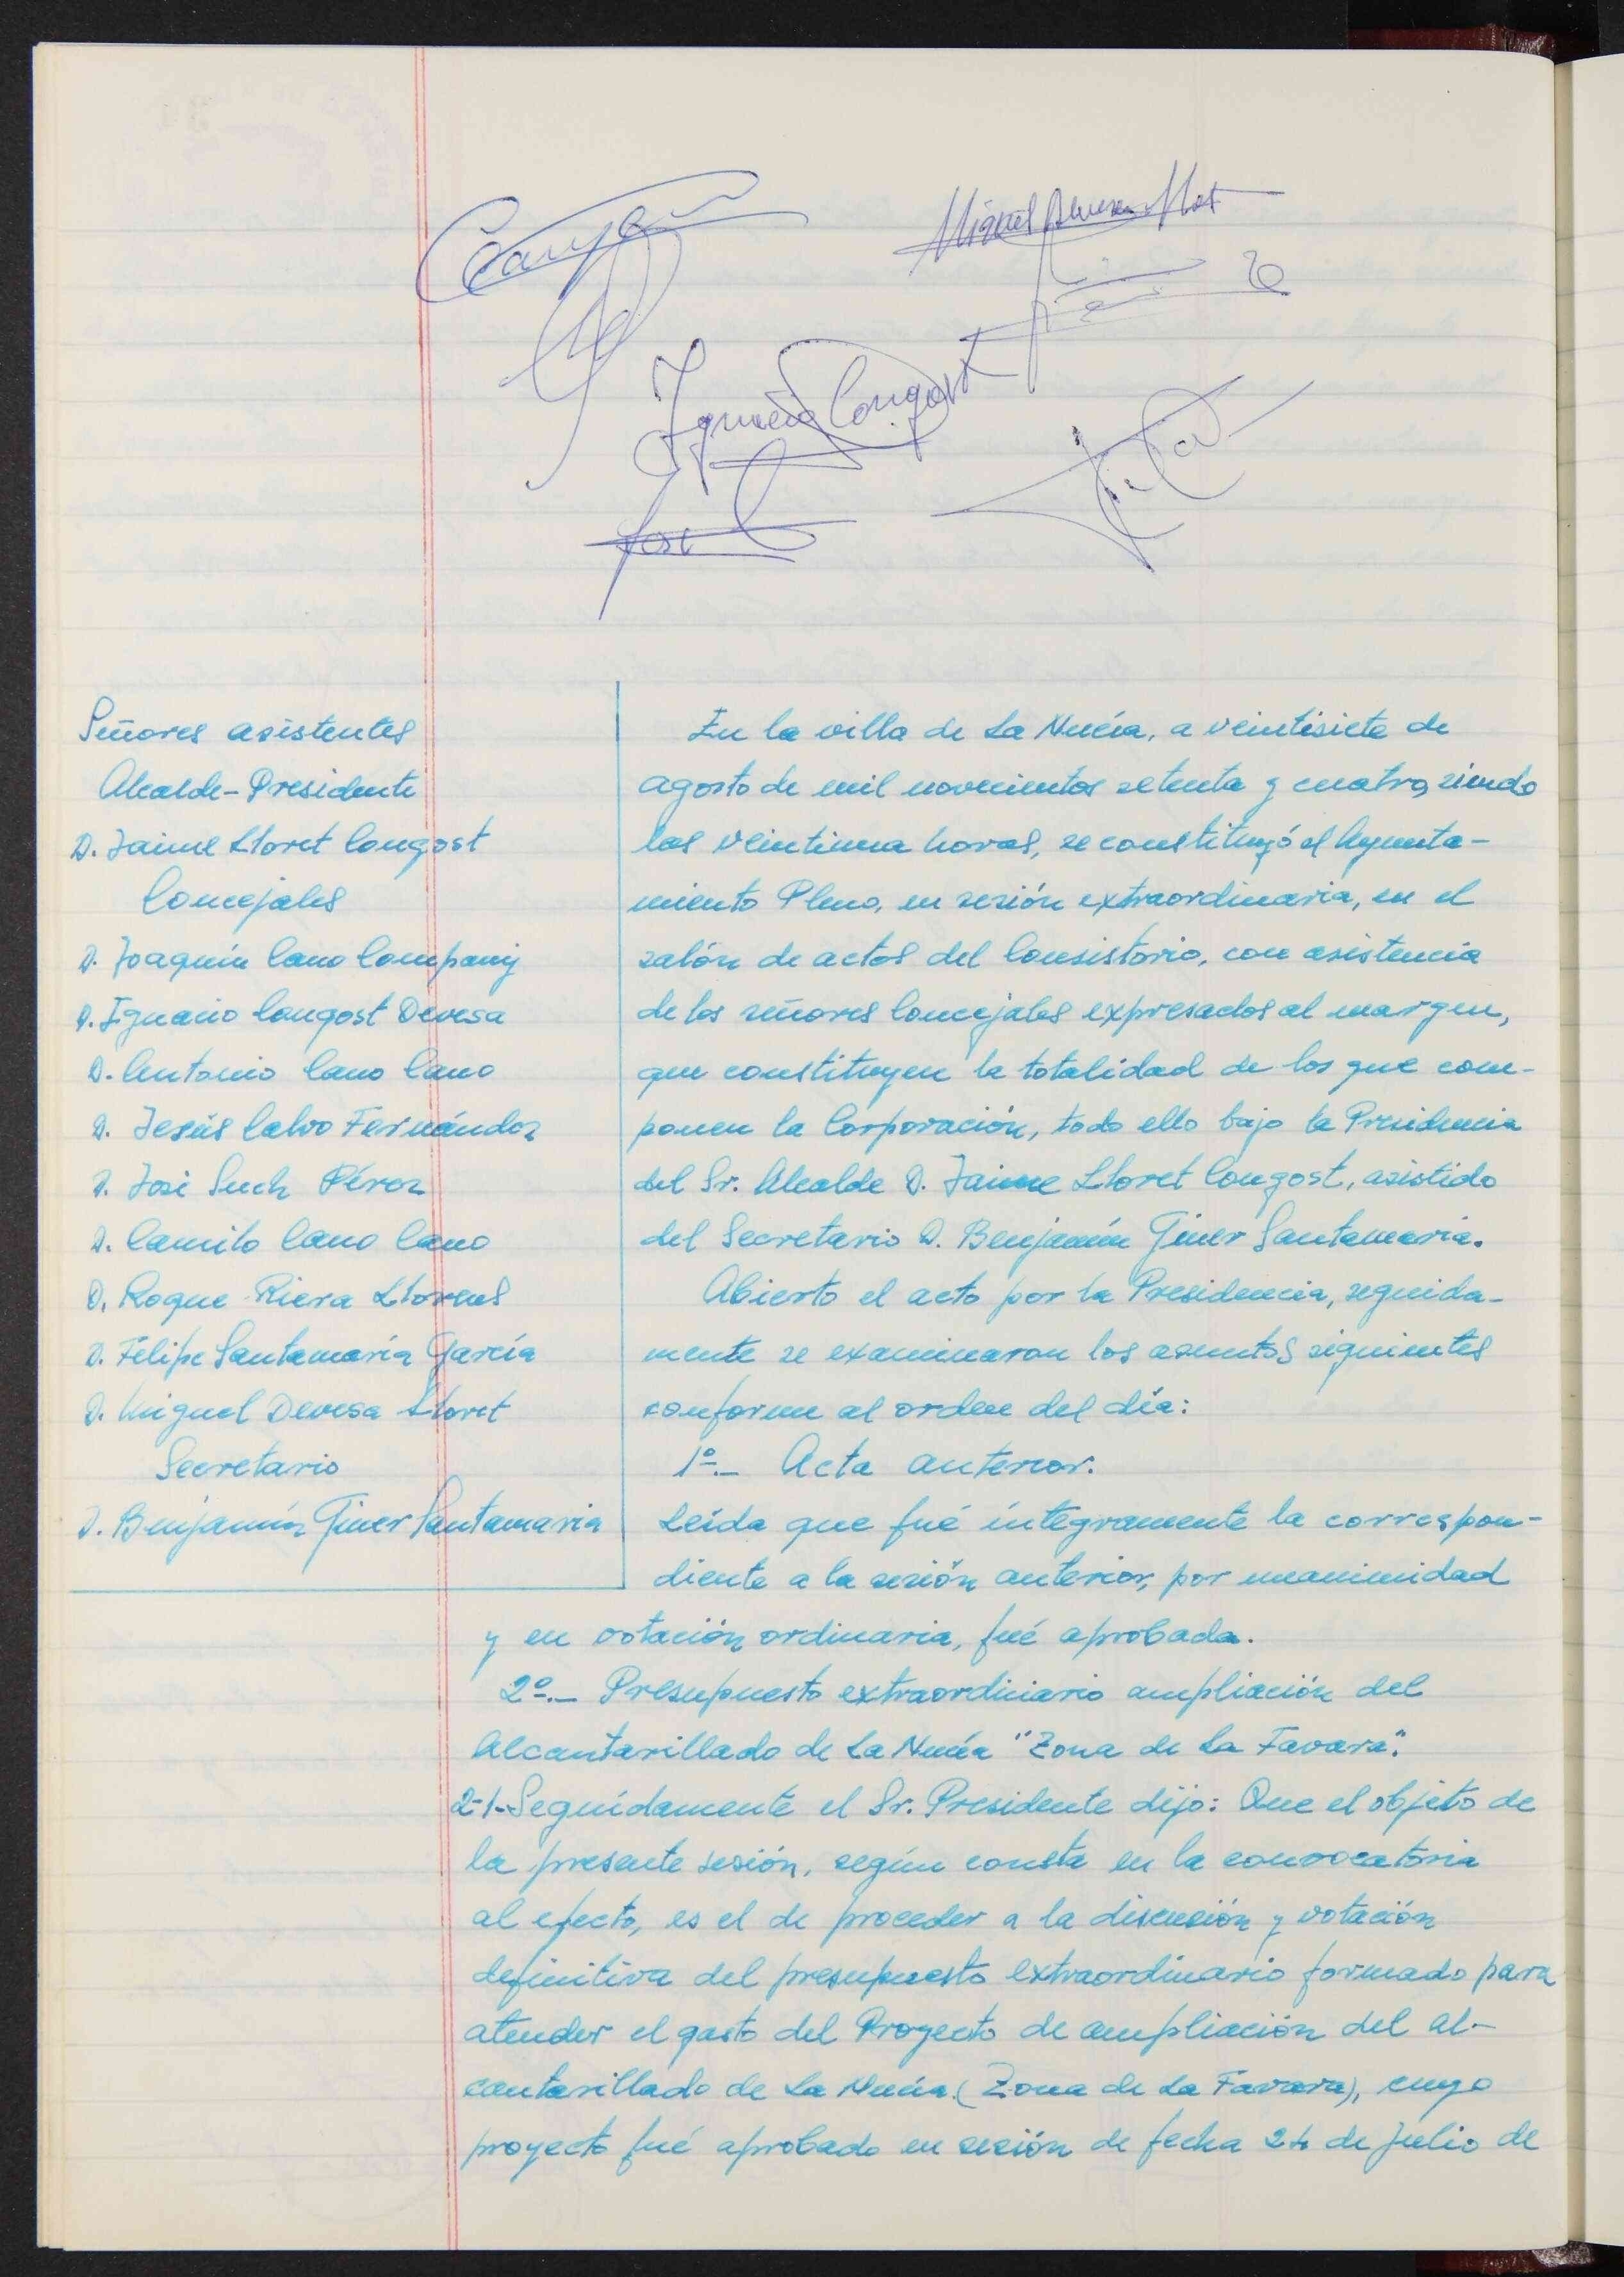 Miguel Devesa Llot
Ignacio Congost
José
Señores asistentes
Alcalde-Presidente
D. Jaime Lloret Congost
Concejales
D. Joaquín Cano Company
D. Ignacio Congost Devesa
D. Antonio Cano Cano
D. Jesús Calvo Fernández
D. José Such Pérez
D. Camilo Cano Cano
D. Roque Riera Llorens
D. Felipe Santamaría García
D. Miguel Devesa Lloret
Secretario
D. Benjamín Giner Santamaria
En la villa de La Nucía, a veintisiete de
agosto de mil novecientos setenta y cuatro, siendo
las veintiuna horas, se constituyó el Ayunta-
miento Pleno, en sesión extraordinaria, en el
salón de actos del Consistorio, con asistencia
de los señores Concejales expresados al margen,
que constituyen la totalidad de los que com-
ponen la Corporación, todo ello bajo la Presidencia
del Sr. Alcalde D. Jaime Lloret Congost, asistido
del Secretario D. Benjamín Giner Santamaria.
Abierto el acto por la Presidencia, seguida-
mente se examinaron los asuntos siguientes
conforme al orden del día:
1º.- Acta anterior.
Leida que fué íntegramente la correspon-
diente a la sesión anterior, por unanimidad
y en votación ordinaria, fué aprobada.
2º.- Presupuesto extraordinario ampliación del
Alcantarillado de La Nucía "Zona de La Favara".
2-1.- Seguidamente el Sr. Presidente dijo: Que el objeto de
la presente sesión, según consta en la convocatoria
al efecto, es el de proceder a la discusión y votación
definitiva del presupuesto extraordinario formado para
atender el gasto del Proyecto de ampliación del al-
cantarillado de La Nucía (Zona de La Favara), cuyo
proyecto fué aprobado en sesión de fecha 24 de Julio de